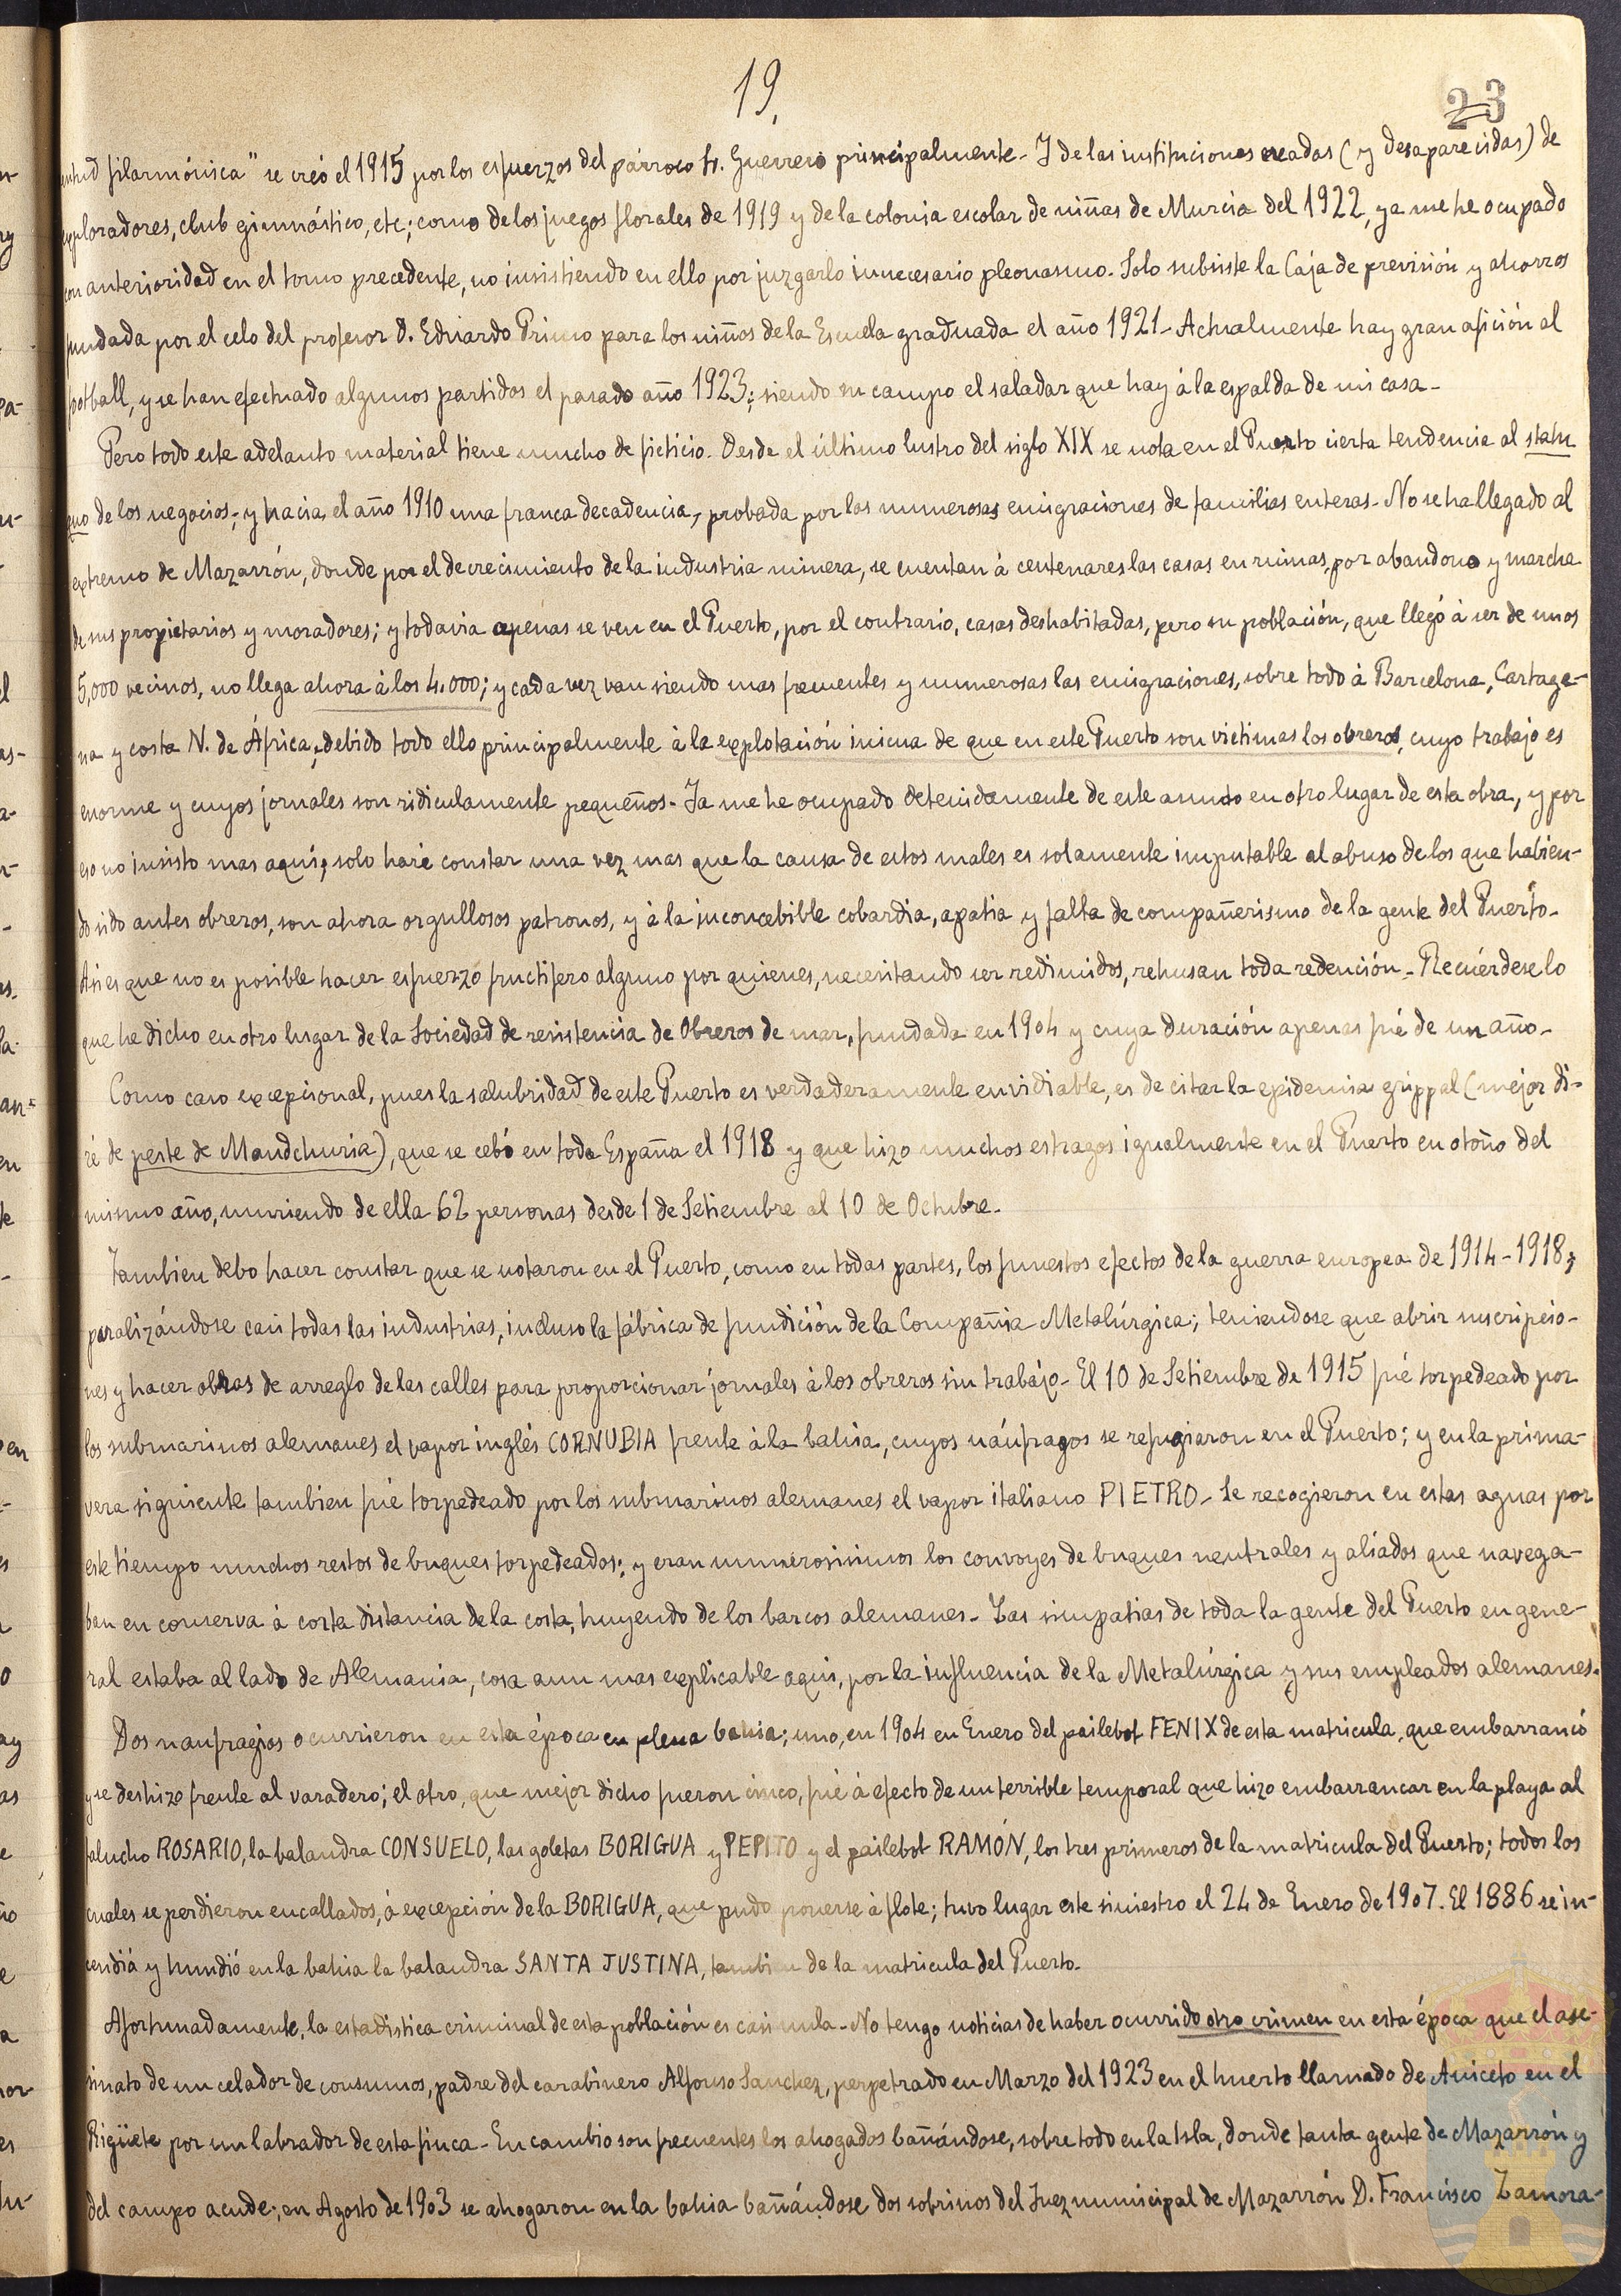 19.
23
filarmónica" se creó el 1915 por los esfuerzos del párroco Sr. Guerrero principalmente - Y de las instituciones creadas (y desaparecidas) de
exploradores, club gimnástico, etc; como de los juegos florales de 1919 y de la colonia escolar de niñas de Murcia del 1922, ya me he ocupado
con anterioridad en el tomo precedente, no insistiendo en ello por juzgarlo innecesario pleonasmo. Solo subsiste la Caja de previsión y ahorros
fundada por el celo del profesor D. Eduardo Primo para los niños de la Escuela graduada el año 1921 - Actualmente hay gran afición al
football, y se han efectuado algunos partidos el pasado año 1923; siendo su campo el saladar que hay á la espalda de mi casa -
Pero todo este adelanto material tiene mucho de ficticio. Desde el último lustro del siglo XIX se nota en el Puerto cierta tendencia al statu
quo de los negocios; y hacia el año 1910 una franca decadencia, probada por las numerosas emigraciones de familias enteras - No se ha llegado al
extremo de Mazarrón, donde por el decrecimiento de la industria minera, se cuentan á centenares las casas en ruinas, por abandono y marcha
de sus propietarios y moradores; y todavia apenas se ven en el Puerto, por el contrario, casas deshabitadas, pero su población, que llegó á ser de unos
5,000 vecinos, no llega ahora á los 4.000; y cada vez van siendo mas frecuentes y numerosas las emigraciones, sobre todo á Barcelona, Cartage-
na y costa N. de África; debido todo ello principalmente á la explotación inicua de que en este Puerto son victimas los obreros, cuyo trabajo es
enorme y cuyos jornales son ridiculamente pequeños - Ya me he ocupado detenidamente de este asunto en otro lugar de esta obra, y por
eso no insisto mas aquí; solo haré constar una vez mas que la causa de estos males es solamente imputable al abuso de los que habien-
do sido antes obreros, son ahora orgullosos patronos, y á la inconcebible cobardia, apatia y falta de compañerismo de la gente del Puerto -
Asi es que no es posible hacer esfuerzo fructifero alguno por quienes, necesitando ser redimidos, rehusan toda redención - Recuérdese lo
que he dicho en otro lugar de la Sociedad de resistencia de Obreros de mar, fundada en 1904 y cuya duración apenas fué de un año -
Como caso excepcional, pues la salubridad de este Puerto es verdaderamente envidiable, es de citar la epidemia grippal (mejor di-
ré de peste de Mandchuria), que se cebó en toda España el 1918 y que hizo muchos estragos igualmente en el Puerto en otoño del
mismo año, muriendo de ella 62 personas desde 1 de Setiembre al 10 de Octubre -
Tambien debo hacer constar que se notaron en el Puerto, como en todas partes, los funestos efectos de la guerra europea de 1914-1918;
paralizándose casi todas las industrias, incluso la fábrica de fundición de la Compañia Metalúrgica; teniendose que abrir suscripcio-
nes y hacer obras de arreglo de las calles para proporcionar jornales á los obreros sin trabajo - El 10 de Setiembre de 1915 fué torpedeado por
los submarinos alemanes el vapor inglés CORNUBIA frente á la bahia, cuyos náufragos se refugiaron en el Puerto; y en la prima-
vera siguiente tambien fué torpedeado por los submarinos alemanes el vapor italiano PIETRO - Se recogieron en estas aguas por
este tiempo muchos restos de buques torpedeados; y eran numerosisimos los convoyes de buques neutrales y aliados que navega-
ban en conserva á corta distancia de la costa, huyendo de los barcos alemanes - Las simpatias de toda la gente del Puerto en gene-
ral estaba al lado de Alemania, cosa aun mas explicable aqui, por la influencia de la Metalúrgica y sus empleados alemanes.
Dos naufragios ocurrieron en esta época en plena bahia; uno, en 1904 en Enero del pailebot FENIX de esta matricula, que embarrancó
y se deshizo frente al varadero; el otro, que mejor dicho fueron cinco, fué á efecto de un terrible temporal que hizo embarrancar en la playa al
falucho ROSARIO, la balandra CONSUELO, las goletas BORIGUA y PEPITO y el pailebot RAMÓN, los tres primeros de la matricula del Puerto; todos los
cuales se perdieron encallados, á excepción de la BORIGUA, que pudo ponerse á flote; tuvo lugar este siniestro el 24 de Enero de 1907. El 1886 se in-
cendiá y hundió en la bahia la balandra SANTA JUSTINA, tambien de la matricula del Puerto.
Afortunadamente, la estadistica criminal de esta población es casi nula - No tengo noticias de haber ocurrido otro crimen en esta época que el ase-
sinato de un celador de consumos, padre del carabinero Alfonso Sanchez, perpetrado en Marzo del 1923 en el huerto llamado de Aniceto en el
Rigüete por un labrador de esta finca - En cambio son frecuentes los ahogados bañándose, sobre todo en la Isla, donde tanta gente de Mazarrón y
del campo acude; en Agosto de 1903 se ahogaron en la bahia bañándose dos sobrinos del Juez municipal de Mazarrón D. Francisco Zamora -